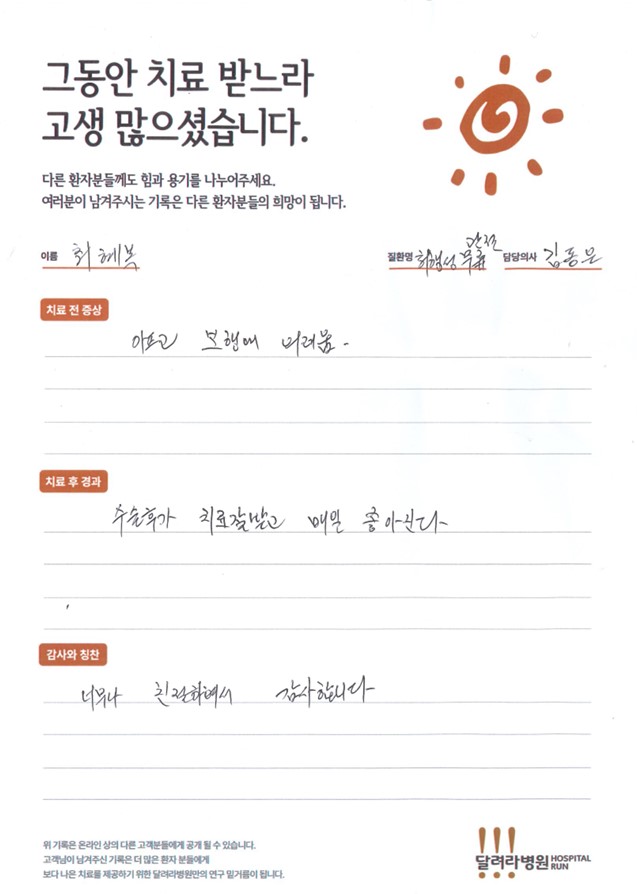 그동안 치료 받느라
고생 많으셨습니다.
다른 환자분들께도 힘과 용기를 나누어주세요.
여러분이 남겨주시는 기록은 다른 환자분들의 희망이 됩니다.
이름 최혜복 질환명 퇴행성 무릎 관절 담당의사 김동은
치료 전 증상
아프고 보행에 어려움.
치료 후 경과
수술후가 치료잘받고 매일 좋아진다
감사와 칭찬
너무나 친절하여서 감사합니다
위 기록은 온라인 상의 다른 고객분들에게 공개 될 수 있습니다.
고객님이 남겨주신 기록은 더 많은 환자 분들에게
보다 나은 치료를 제공하기 위한 달려라병원만의 연구 밑거름이 됩니다.
달려라병원 HOSPITAL RUN